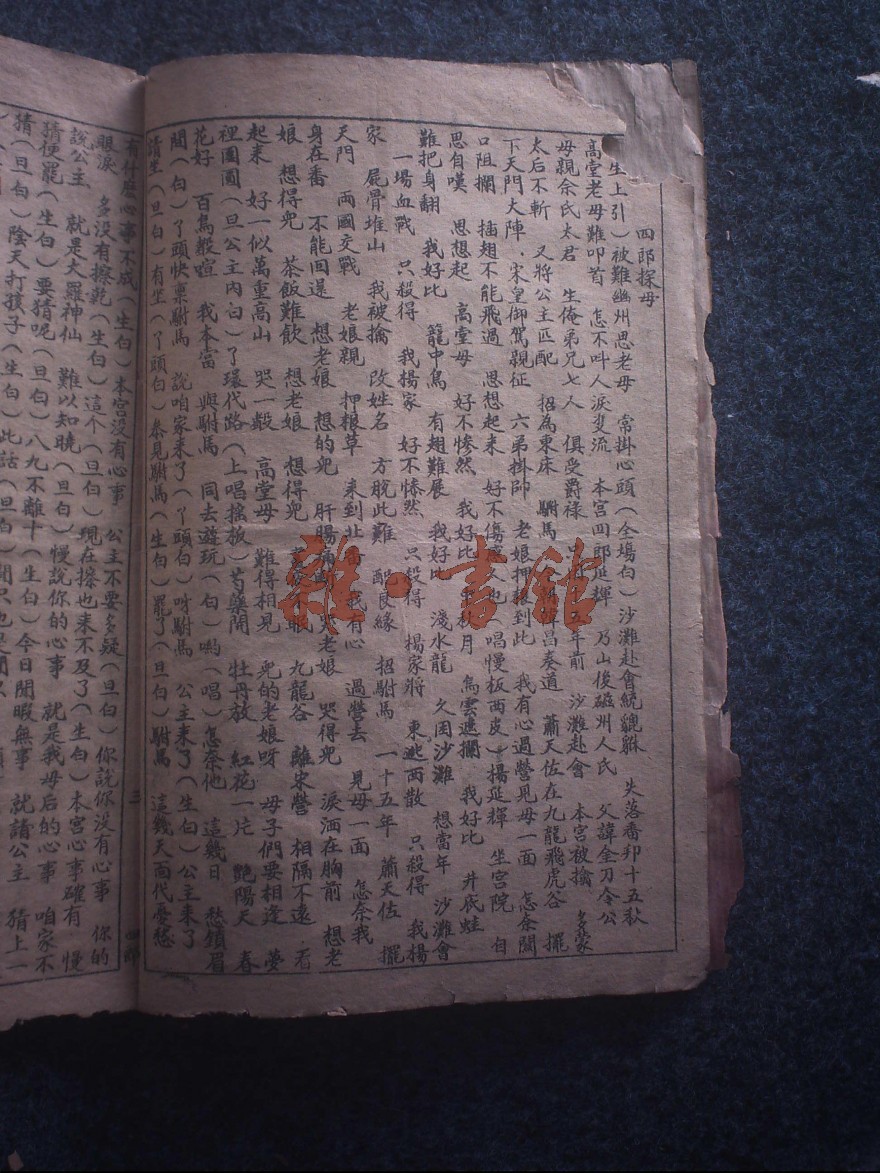 四郎探母
生上引）被難幽州思老母　常掛心頭（全場白）沙灘赴會統貔貅　失落番邦十五秋
高堂老母難叩首　怎不叫人淚双流　本宮四郎延輝　乃山後磁州人氏　父諱金刀令公
母親佘氏太君　生俺弟兄七人　俱受爵祿　五年前　沙灘赴會　本宮被擒　多蒙
太后不斬　又將公主匹配　招為東床　駙馬　昌奏道　蕭天佐在九龍飛虎谷　擺
下天門大陣．宋皇御駕親征　六弟掛帥　老娘押糧到此　我有心過營見母一面　怎奈關
口阻攔　插翅不能飛過　思想起來　好不傷感人也（唱慢板西皮）揚延輝　坐宮院　自
思自嘆　思想起　高堂母　好不慘然　我好比　月　烏雲遮攔　我好比　井底蛙
難把身翻　我好比　籠中鳥　有翅難展　我好比　淺水龍　久困沙灘　想當年　沙灘會
一場血戰　只殺得　我揚家　好不慘然　只殺得　楊家將　東逃西散　只殺得　我揚
家　屍骨堆山　我被擒　改姓名　方脫此難　配良緣　招駙馬　一十五年　蕭天佐　擺
天門　兩國交戰　老娘親　押粮草　來到北番　我有心　過營去　見母一面　怎奈我
身在番　不能回還　想老娘　想的兒　肝腸　老娘　哭得兒　淚洒在胸前　想老
娘　想得兒　茶飯難飲　想老娘　想得兒　眠　九龍谷　離宋營　相隔不遠．看
起來　好一似　萬重高山　哭一般　高堂母　難得相見　兒的老娘呀　母子們要相逢　夢
裡團圓（旦公主內白）了環代路（上唱搖板）芍藥開　牡丹放　紅花一片　艷陽天　春
花好　百鳥般喧　我本當　與駙馬　同去遊玩（白）喲（唱）怎奈他　這幾日　愁鎖眉
間（白）了頭快稟駙馬　說咱家來了（丫頭白）呀駙馬　公主來了（生白）公主來了
請坐（旦白）有坐（丫頭白）恭見駙馬（生白）罷了（旦白）駙馬　這幾天面代憂愁
三　四郎
有什麽心事不成（生白）本宮没有心事　公主不要多疑（旦白）你說你没有心事　你的
眼淚　多没有擦乾（生白）這个（旦白）現在擦也來不及了（生白）本宮心事確有　慢
說公主　就是大羅神仙　難以知曉（旦白）慢說你的心事　就是我母后的心事　咱家不
猜便罷（生白）要猜呢（旦白）八九不離十（生白）今日閒暇無事　就請公主　猜上一
猜（旦白）陰天打孩子（生白）此話（旦白）閒只也是閒以